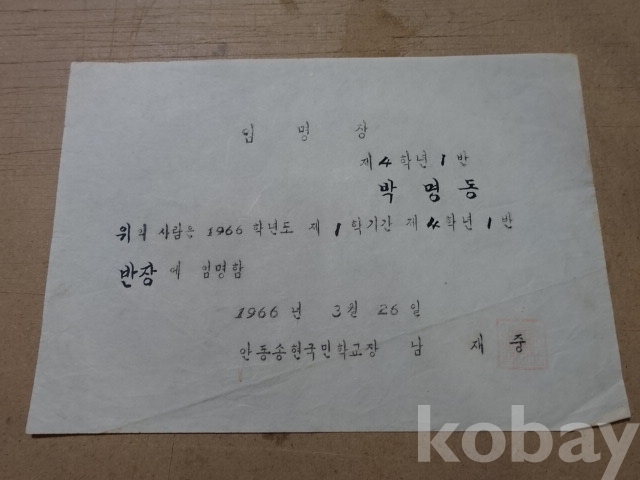 임 명 장
제 4 학년 1 반
박 명 동
위의 사람을 1966 학년도 제 1 학기간 제 4 학년 1 반
반장 에 임명함
1966 년 3 월 26 일
안동송현국민학교장 남 재 중
kobay